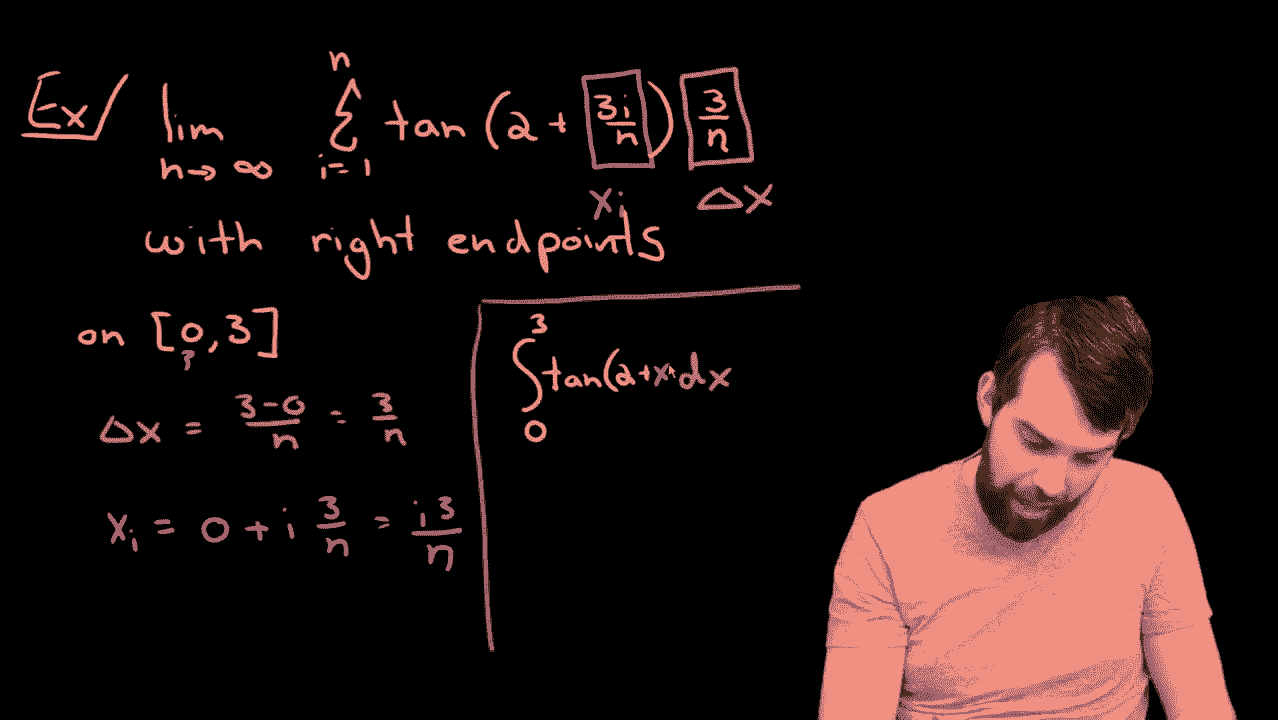 Ex/ lim n→∞ n Σ i=1 tan (2 + 3i/n) 3/n
xi Δx
with right endpoints
on [0,3]
?
Δx = 3-0/n = 3/n
xi = 0 + i 3/n = i3/n
∫ 3 0 tan(2+x dx